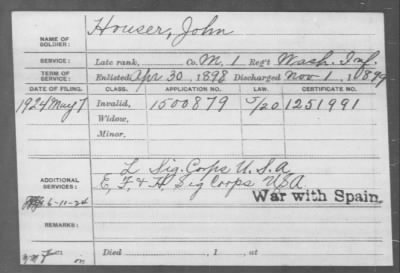 NAME OF SOLDIER: Houser, John
SERVICE: Late rank, Co. M, 1 Reg't Wash. Inf.
TERM OF SERVICE: Enlisted Apr 30, 1898 Discharged Nov 1, 1899
DATE OF FILING. CLASS. APPLICATION NO. LAW. CERTIFICATE NO.
1924 May 7 Invalid, 1500879 5/20 1251991
Widow,
Minor,
ADDITIONAL SERVICES: L Sig. Corps U.S.A
E, F, & H Sig Corps USA
6-10-24 War with Spain.
REMARKS:
Died , 1 , at